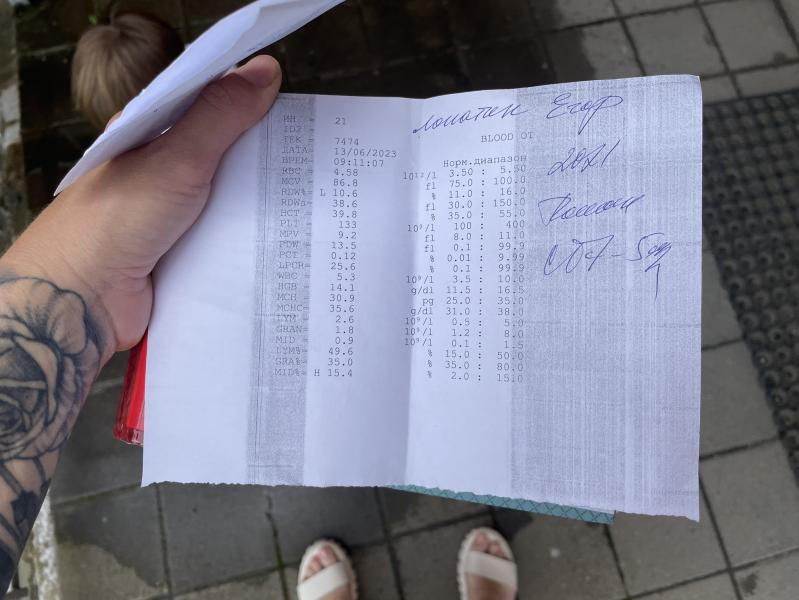 Егор
ИН = 21
ID2 =
ТЕК = 7474 BLOOD OT
ДАТА= 13/06/2023
ВРЕМ= 09:11:07 Норм.диапазон 2021
RBC = 4.58 10¹²/l 3.50 : 5.50
MCV = 86.8 fl 75.0 : 100.0
RDW%= L 10.6 % 11.0 : 16.0
RDWa= 38.6 fl 30.0 : 150.0
HCT = 39.8 % 35.0 : 55.0
PLT = 133 10⁹/l 100 : 400
MPV = 9.2 fl 8.0 : 11.0
PDW = 13.5 fl 0.1 : 99.9
PCT = 0.12 % 0.01 : 9.99
LPCR= 25.6 % 0.1 : 99.9
WBC = 5.3 10⁹/l 3.5 : 10.0
HGB = 14.1 g/dl 11.5 : 16.5
MCH = 30.9 pg 25.0 : 35.0
MCHC= 35.6 g/dl 31.0 : 38.0
LYM = 2.6 10⁹/l 0.5 : 5.0
GRAN= 1.8 10⁹/l 1.2 : 8.0
MID = 0.9 10⁹/l 0.1 : 1.5
LYM%= 49.6 % 15.0 : 50.0
GRA%= 35.0 % 35.0 : 80.0
MID%= H 15.4 % 2.0 : 15.0